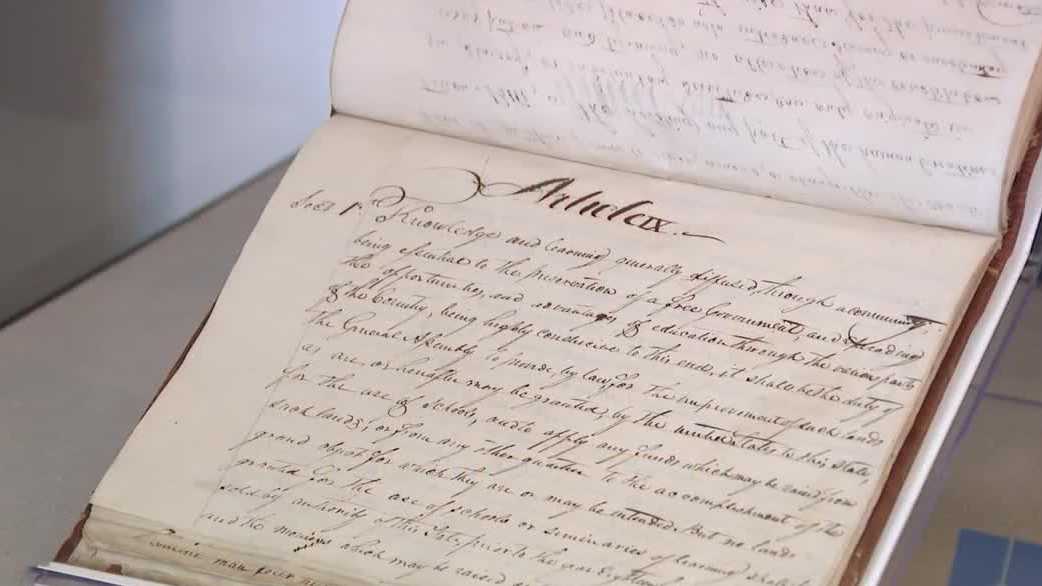 But, as the holding any part of the human Creation
in slavery, or involuntary servitude can only originate in
usurpation and tyranny, no alteration of this constitution
than for the punishment
Article IX.
Sect 1st Knowledge and learning generally diffused, through a community,
being essential to the preservation of a free Government, and spreading
the opportunities, and advantages of education through the various parts
of the Country, being highly conducive to this end, it shall be the duty of
the General Assembly to provide by law, for the improvement of such lands
as are, or hereafter may be granted, by the united states to this state,
for the use of schools, and to apply any funds which may be raised from
such lands, or from any other quarter to the accomplishment of the
grand object for which they are or may be intended. But no lands
granted for the use of schools or seminaries of learning shall be
sold by authority of this State prior to the year eighteen
and the monies which may be raised